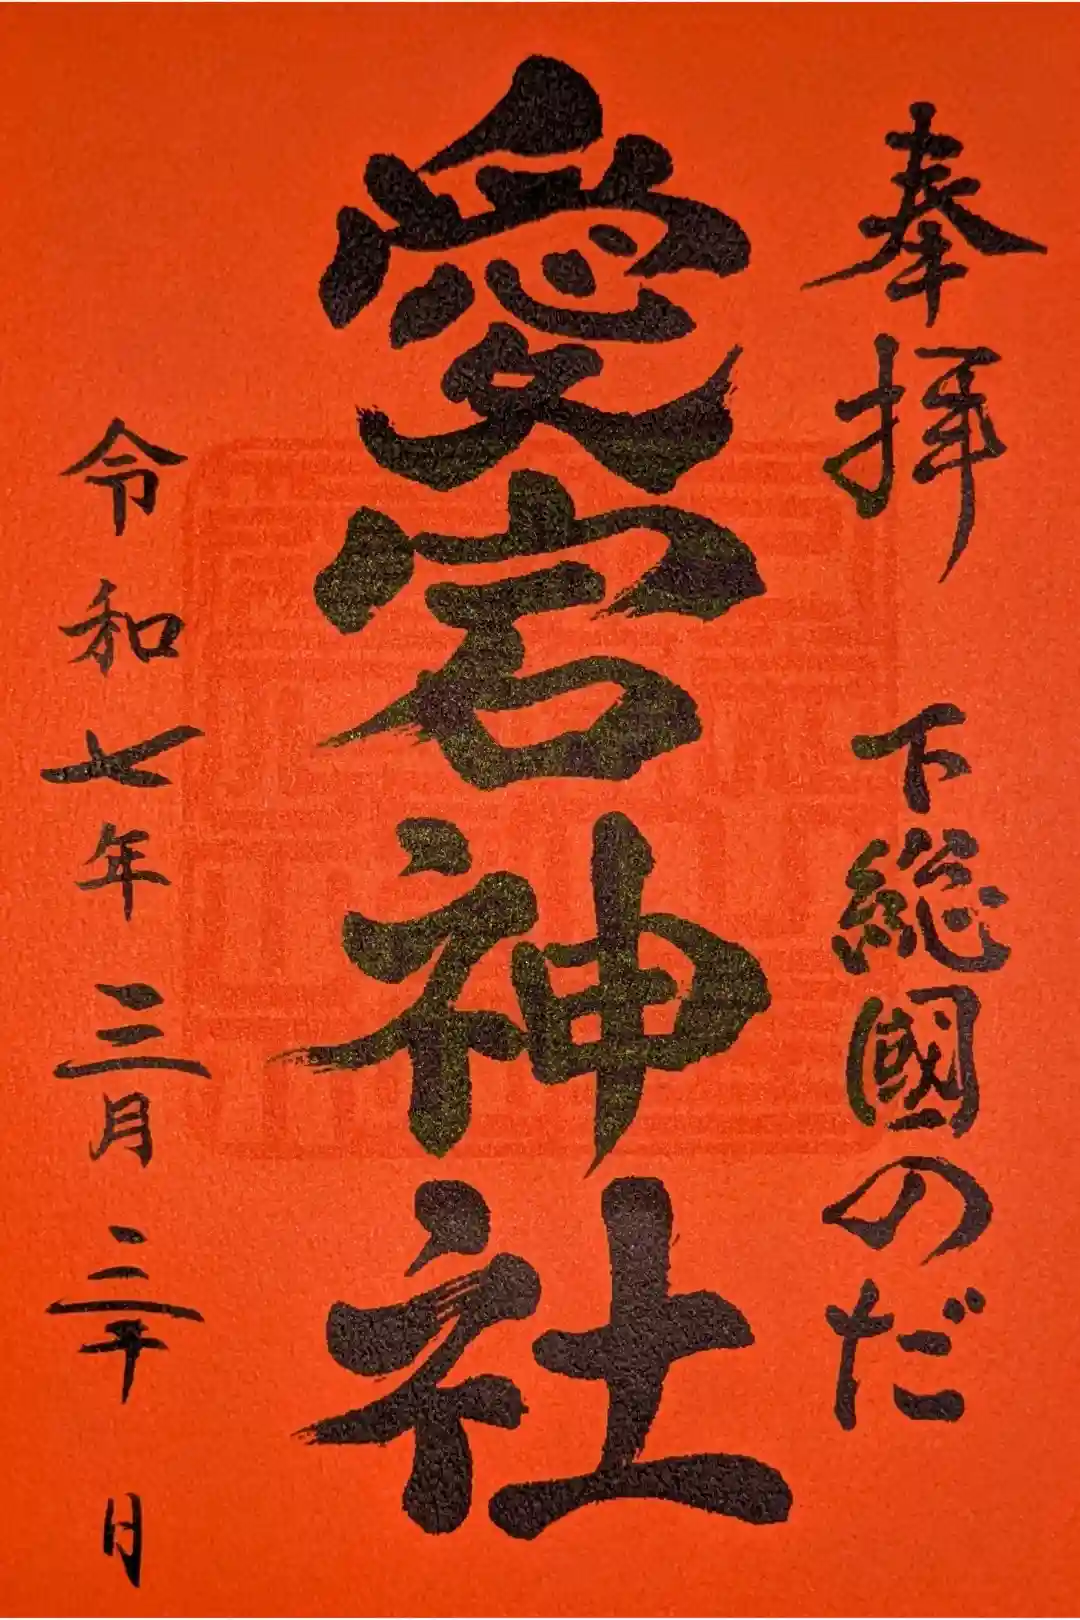 奉拝　下総國のだ
愛宕神社
令和七年三月三十日